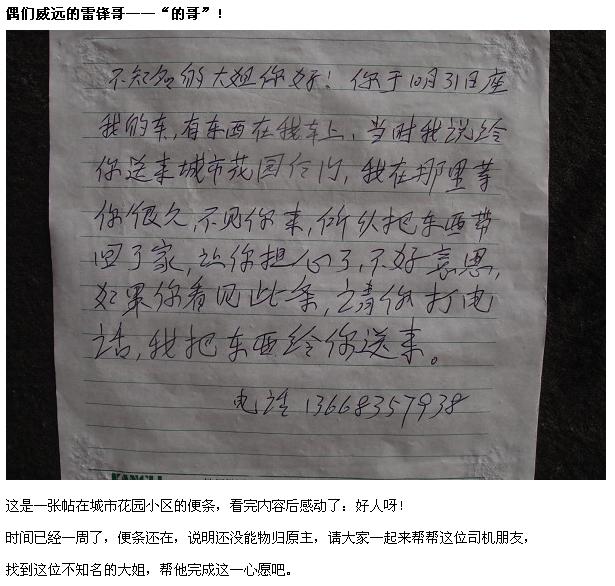 偶们威远的雷锋哥——“的哥”！
不知名的大姐你好！你于10月31日座
我的车，有东西在我车上，当时我说给
你送来城市花园给你，我在那里等
你很久，不见你来，所以把东西带
回了家，让你担心了，不好意思，
如果你看见此条，请你打电
话，我把东西给你送来。
电话 13668357938
KANGLI
这是一张帖在城市花园小区的便条，看完内容后感动了：好人呀！
时间已经一周了，便条还在，说明还没能物归原主，请大家一起来帮帮这位司机朋友，
找到这位不知名的大姐，帮他完成这一心愿吧。